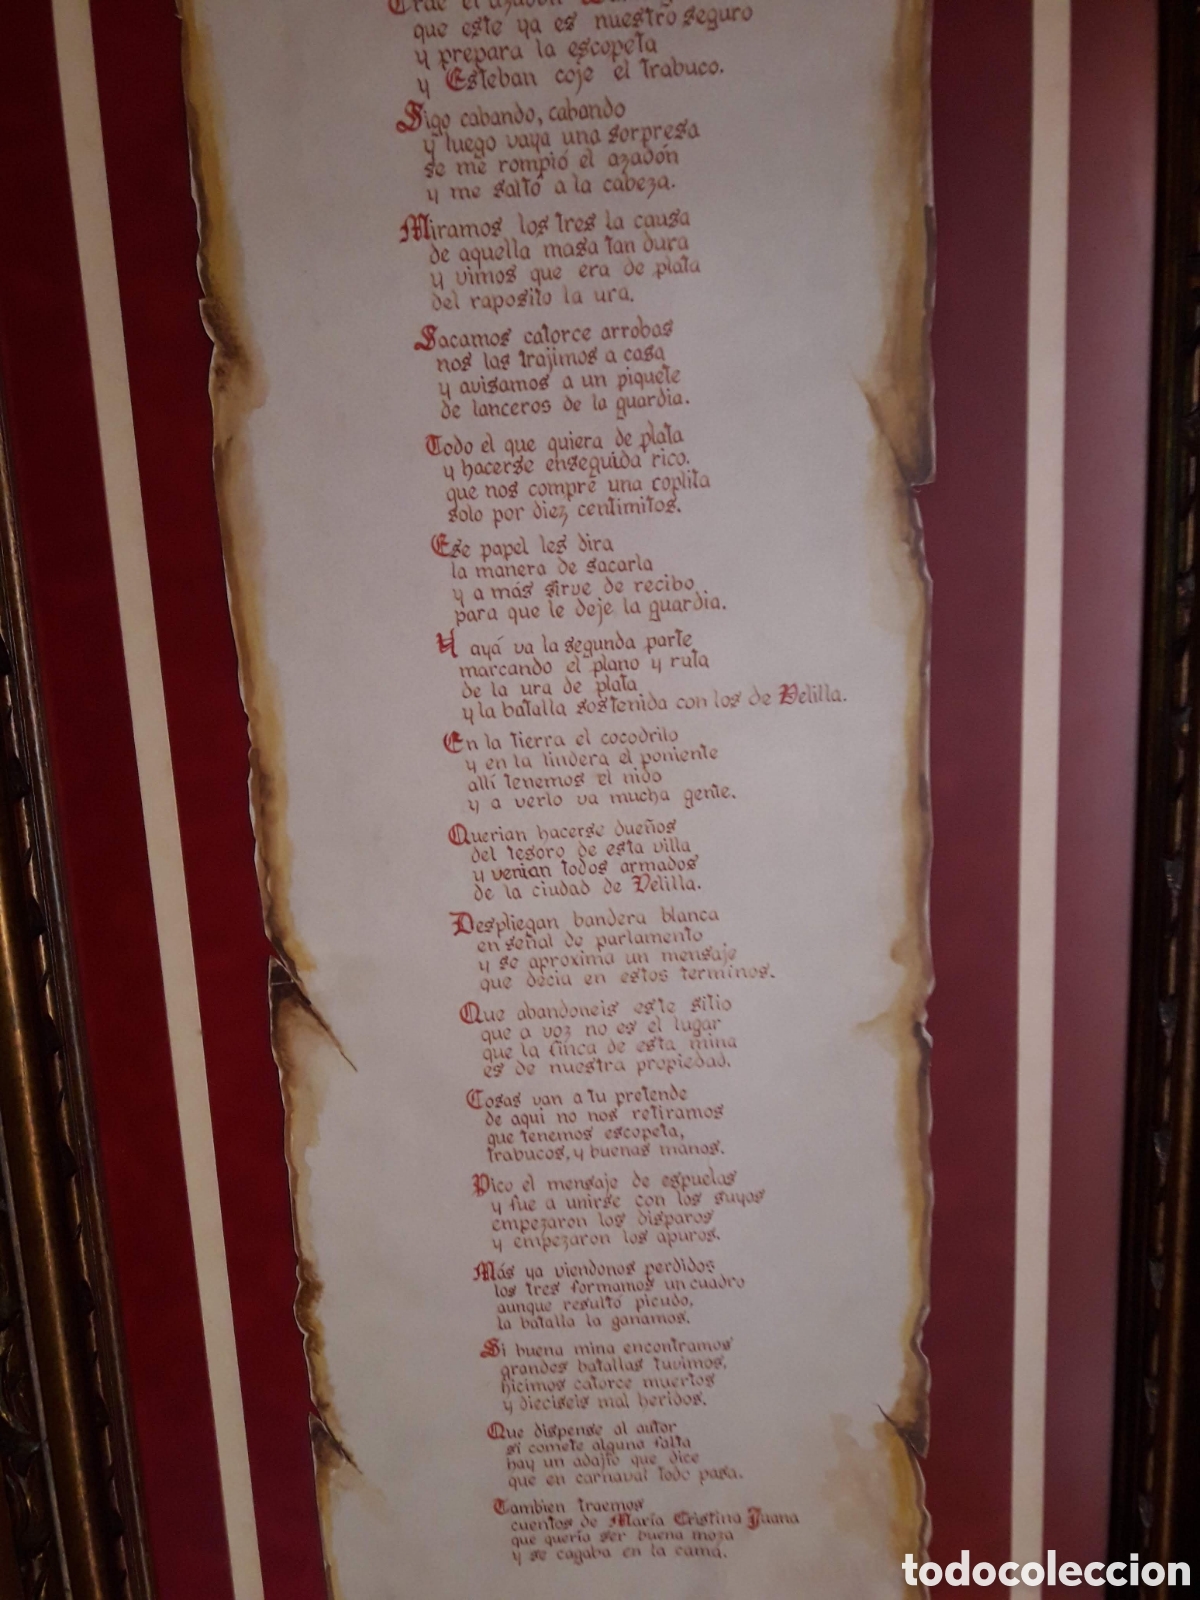 Trae el azadón
que este ya es nuestro seguro
y prepara la escopeta
y Esteban coje el trabuco.
Sigo cabando, cabando
y luego vaya una sorpresa
se me rompió el azadón
y me saltó a la cabeza.
Miramos los tres la causa
de aquella masa tan dura
y vimos que era de plata
del raposito la ura.
Sacamos catorce arrobas
nos las trajimos a casa
y avisamos a un piquete
de lanceros de la guardia.
Todo el que quiera de plata
y hacerse enseguida rico.
que nos compre una coplita
solo por diez centimitos.
Ese papel les dira
la manera de sacarla
y a más sirve de recibo
para que le deje la guardia.
Y ayá va la segunda parte
marcando el plano y ruta
de la ura de plata
y la batalla sostenida con los de Velilla.
En la tierra el cocodrilo
y en la lindera el poniente
allí tenemos el nido
y a verlo va mucha gente.
Querian hacerse dueños
del tesoro de esta villa
y venian todos armados
de la ciudad de Velilla.
Despliegan bandera blanca
en señal de parlamento
y se aproxima un mensaje
que decia en estos terminos.
Que abandoneis este sitio
que a voz no es el lugar
que la finca de esta mina
es de nuestra propiedad.
Cosas van a tu pretende
de aqui no nos retiramos
que tenemos escopeta,
trabucos, y buenas manos.
Pico el mensaje de espuelas
y fue a unirse con los suyos
empezaron los disparos
y empezaron los apuros.
Más ya viendonos perdidos
los tres formamos un cuadro
aunque resultó picudo,
la batalla la ganamos.
Si buena mina encontramos
grandes batallas tuvimos,
hicimos catorce muertos
y dieciseis mal heridos.
Que dispense al autor
si comete alguna falta
hay un adajio que dice
que en carnaval todo pasa.
Tambien traemos
cuentos de María Cristina Juana
que quería ser buena moza
y se cagaba en la cama.
todocoleccion